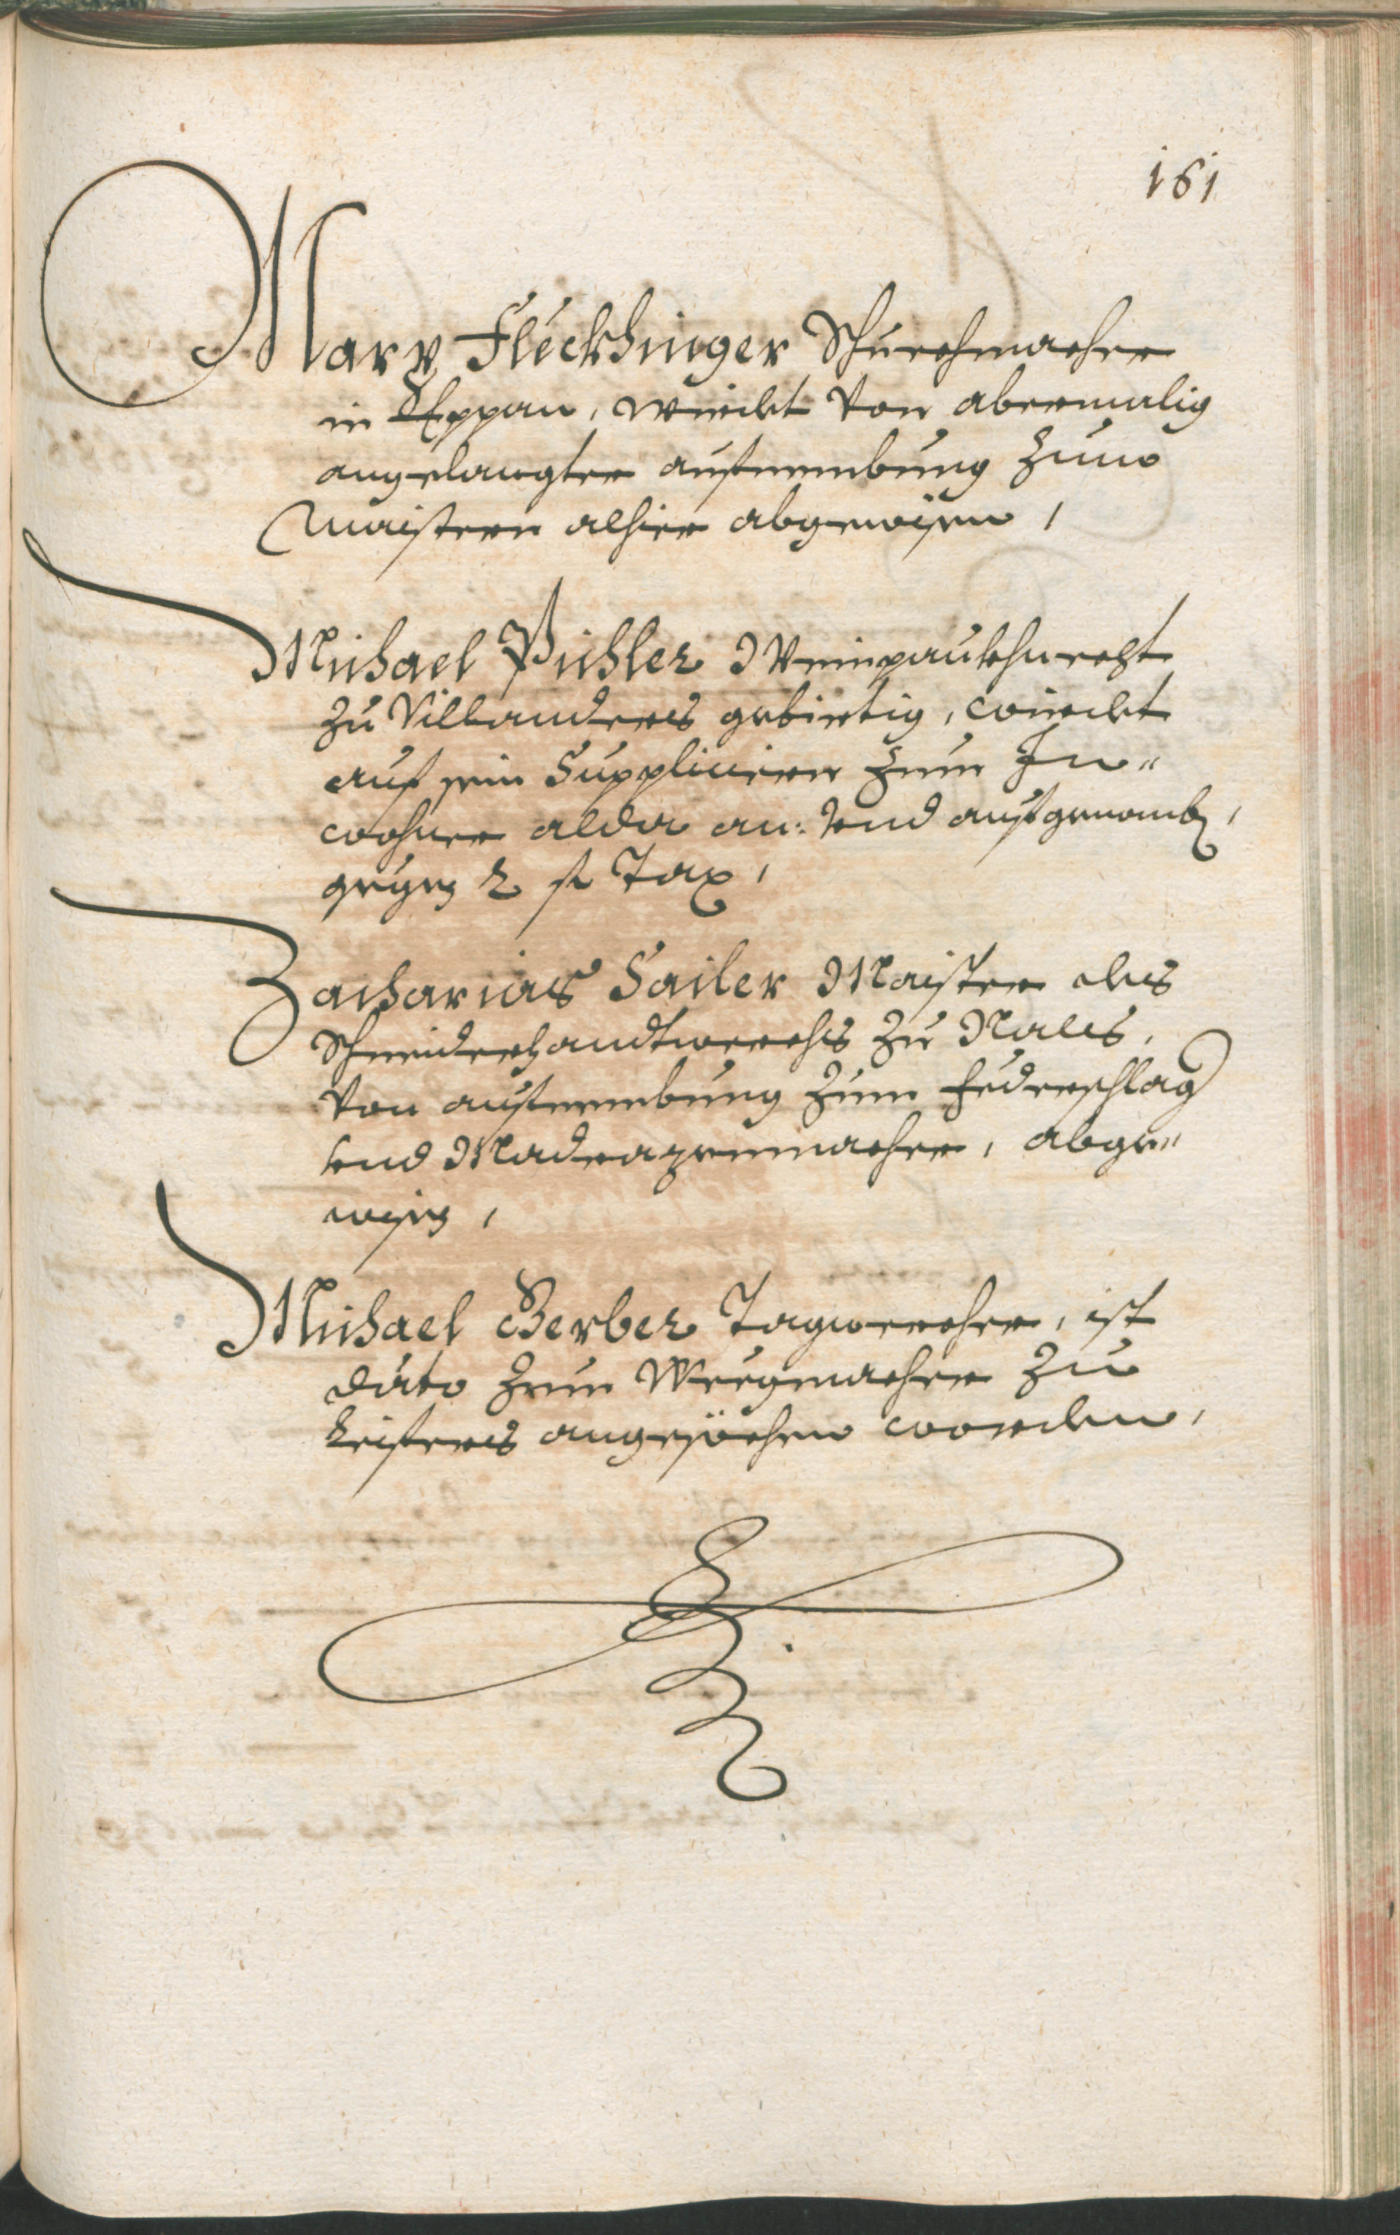 161
Marx Fleckhinger Schuechmacher
in Eppan, würdet von abermalig
angelangter aufnembung zum
Maistern alhier abgewisen,
Michael Pichler Weinpaukhnecht
zu Villanders gebirtig, würdet
auf sein Supplicieren zum In„
wohner alda an: und aufgenomben,
gegen 2 fl Tax,
Zacharias Sailer Maister des
Schneiderhandtwerchs zu Nals,
von aufnembung zum Federschlag
und Maderazenmacher, abge„
wisen,
Michael Gerber Tagwercher, ist
dato zum Weegmacher zu
Leifers angesöchen worden,